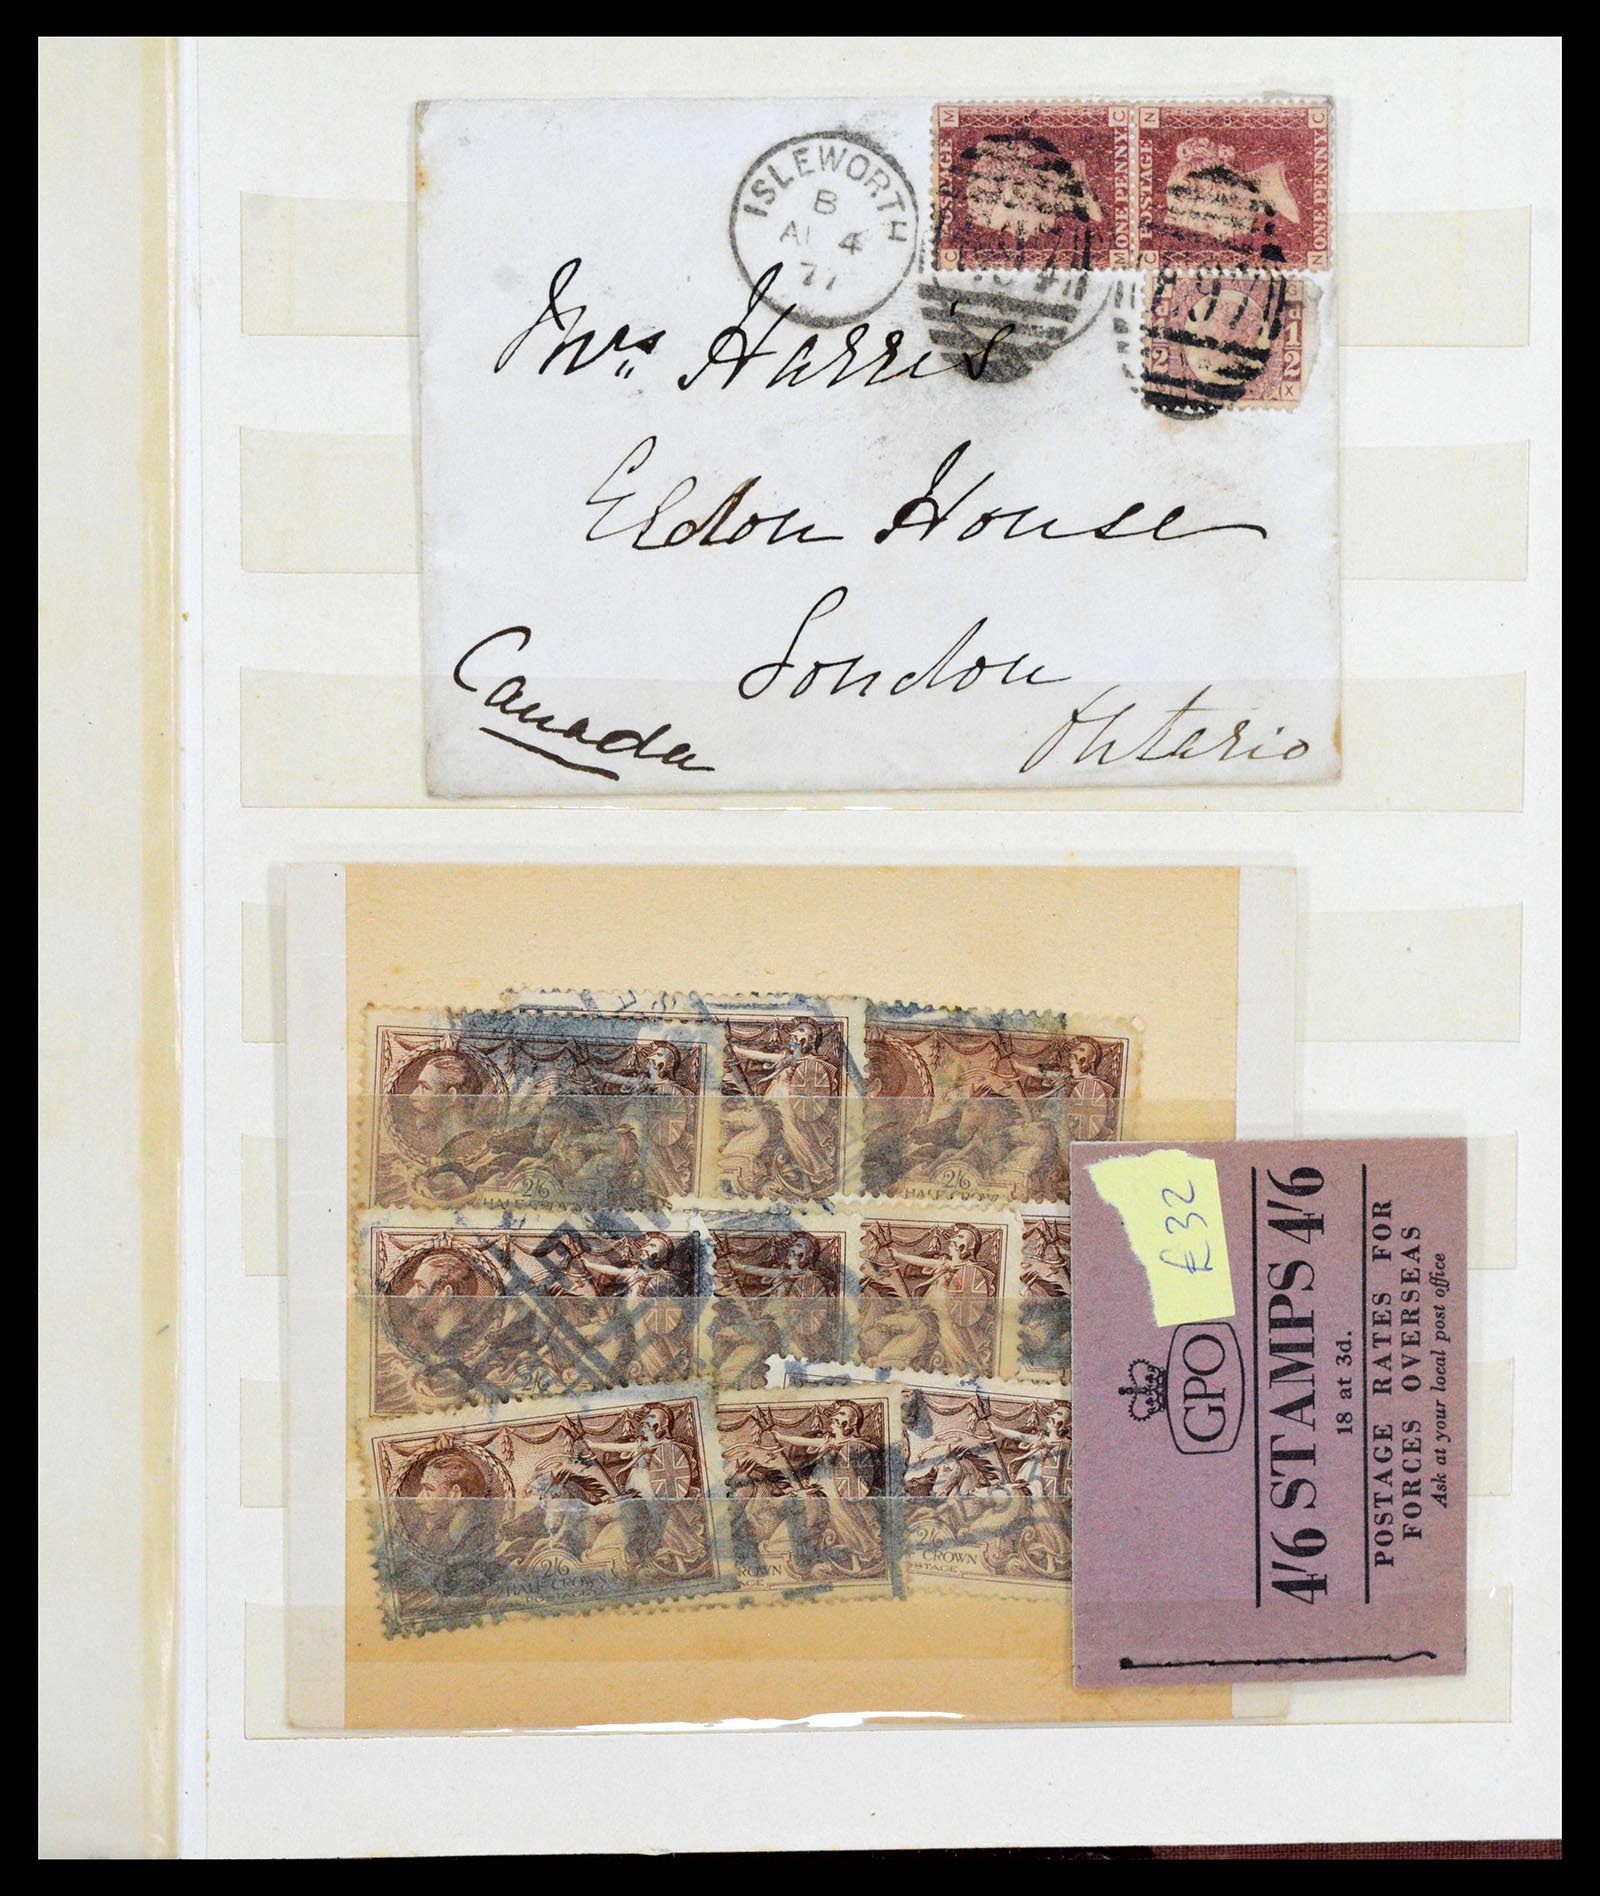 ISLEWORTH
B
AU 4
77
M C
POSTAGE
ONE PENNY
C M
N C
POSTAGE
ONE PENNY
C N
497
Mrs. Harris
Eldon House
London
Ontario
Canada
2/6
HALF CROWN
2/6
HALF CROWN
2/6
2/6
HALF CROWN
POSTAGE
CROWN
2/6
CROWN
POSTAGE
£32
GPO
4'6 STAMPS 4'6
18 at 3d.
POSTAGE RATES FOR
FORCES OVERSEAS
Ask at your local post office